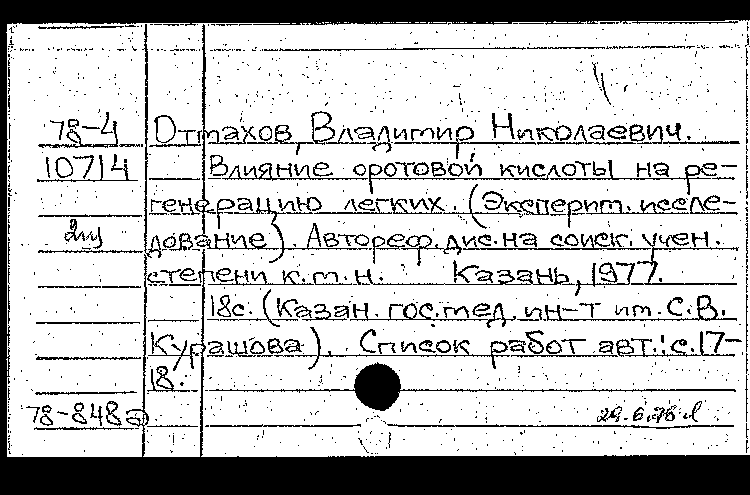 78-4 Оттахов, Владимир Николаевич.
10714 Влияние оротовой кислоты на ре-
генерацию легких. (Эксперит. иссле-
дование). Автореф. дис. на соиск. учен.
степени к.т.н. Казань, 1977.
18с. (Казан. гос. тед. ин-т ит. С.В.
Курашова). Список работ авт.: с. 17-
18.
78-848а 29.6.78